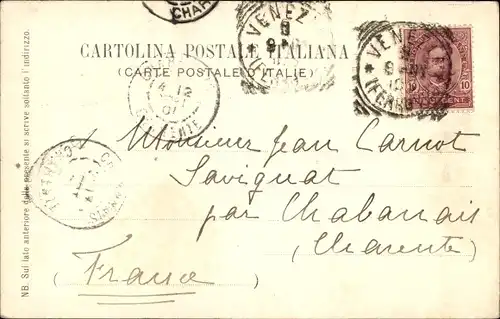 CHAR
VENEZ
8
CARTOLINA POSTALE ITALIANA
(CARTE POSTALE D'ITALIE)
VENEZ
10
Monsieur Jean Carnot
Savignat
par Chabanais
(Charente)
(France)
NB. Sul lato anteriore della presente si scrive soltanto l'indirizzo.